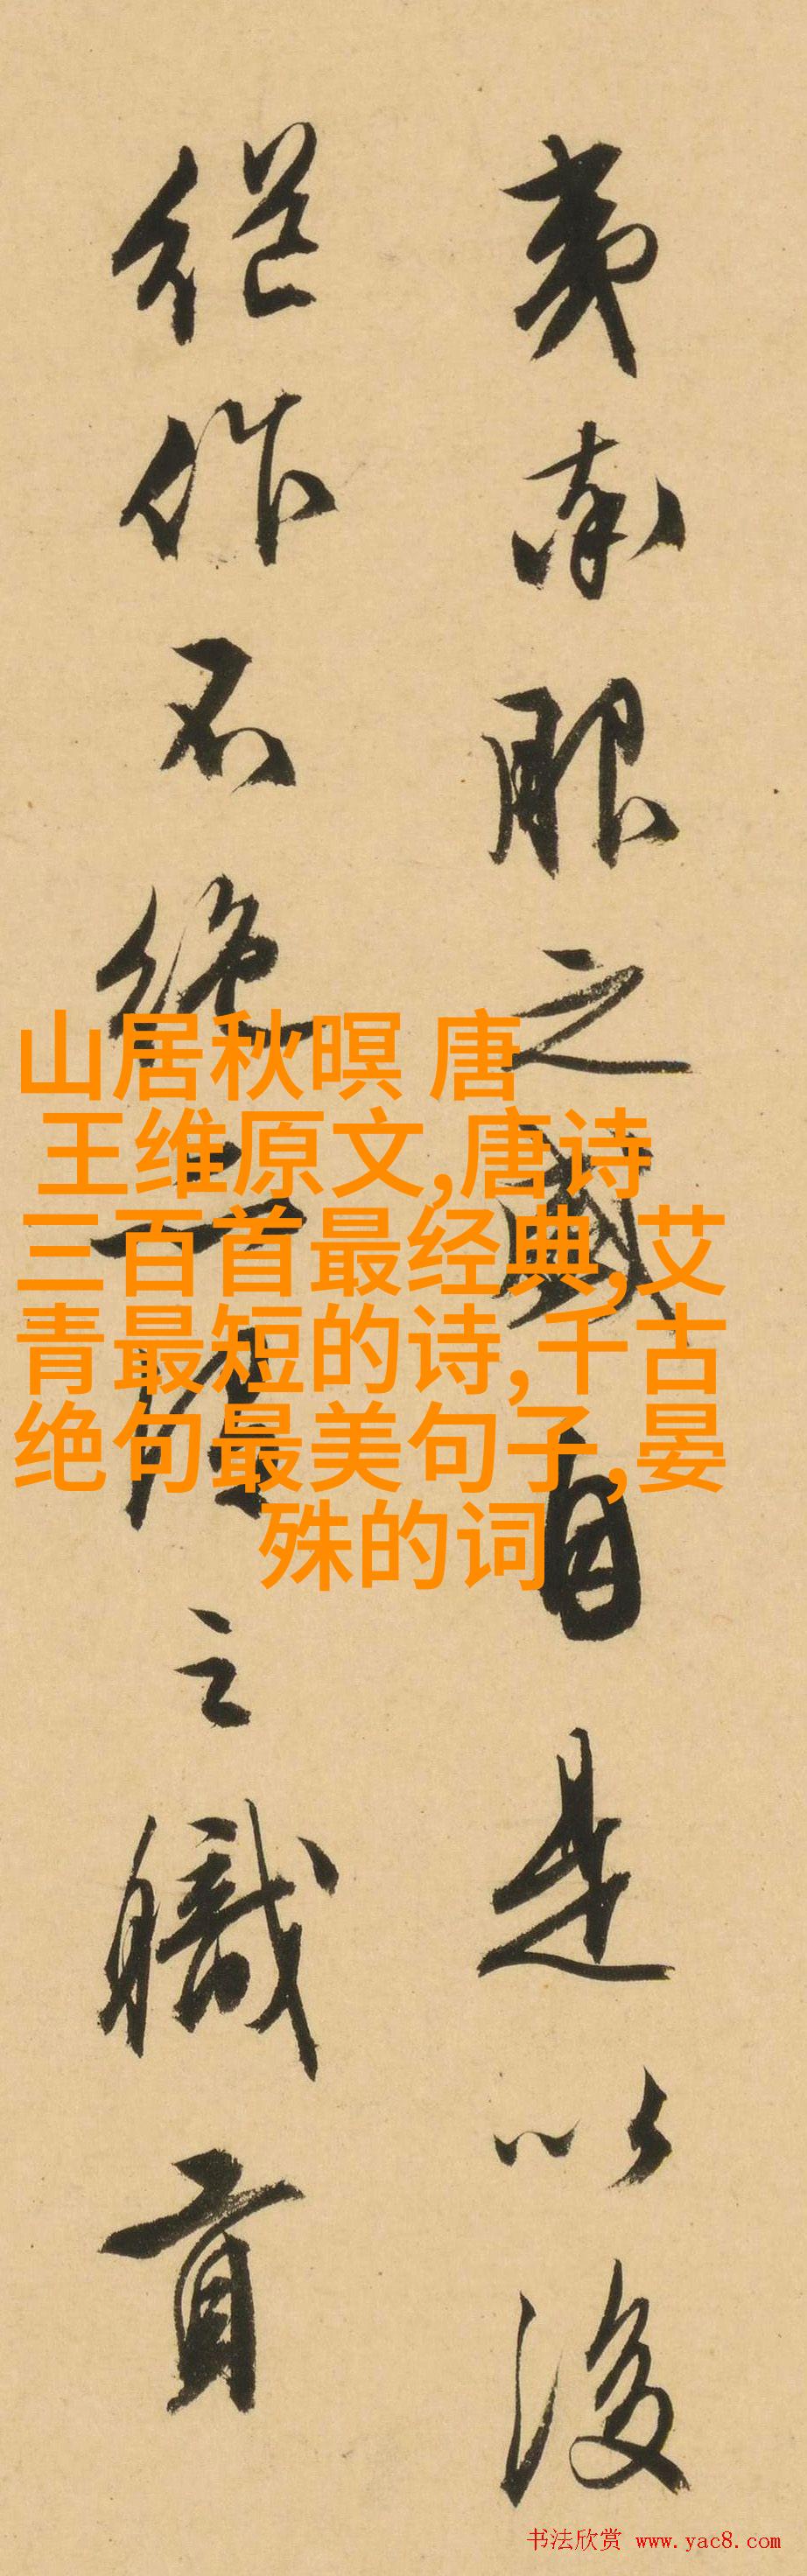 夷南服之國自是以後
継作不絶之職貢
山居秋暝 唐
王维原文,唐诗
三百首最经典,艾
青最短的诗,千古
绝句最美句子,晏
殊的词
书法欣赏 www.yac8.com